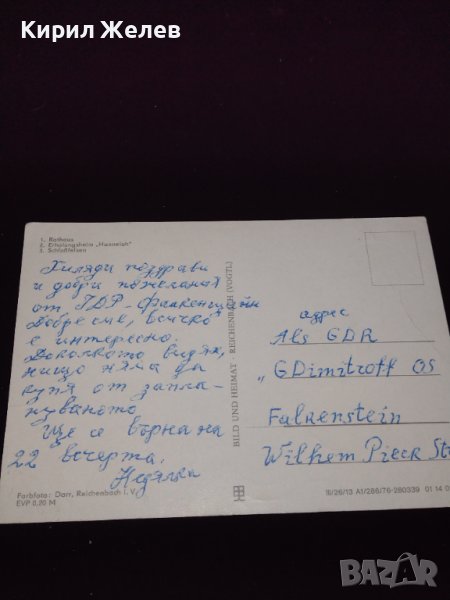 Кирил Желев
1. Rathaus
2. Erholungsheim „Husareich"
3. Schloßfelsen
Хиляди поздрави
и добри пожелания
от ГДР - Фалкенщайн
Добре сме, всичко
е интересно.
Доколкото видях,
нищо няма да
купя от запла-
нуваното
Ще се върна на
22 вечерта.
Недялка
Farbfoto: Darr, Reichenbach i. V.
EVP 0,20 M
BILD UND HEIMAT · REICHENBACH (VOGTL)
адрес
Als GDR
„GDimitroff OS
Falkenstein
Wilhem Pieck Str
III/26/13 A1/286/76-280339 01 14 0
BAZAR